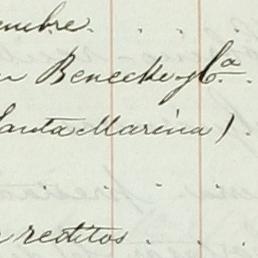 embre.
n Benecke y Cª
Santa Marina)
reditos